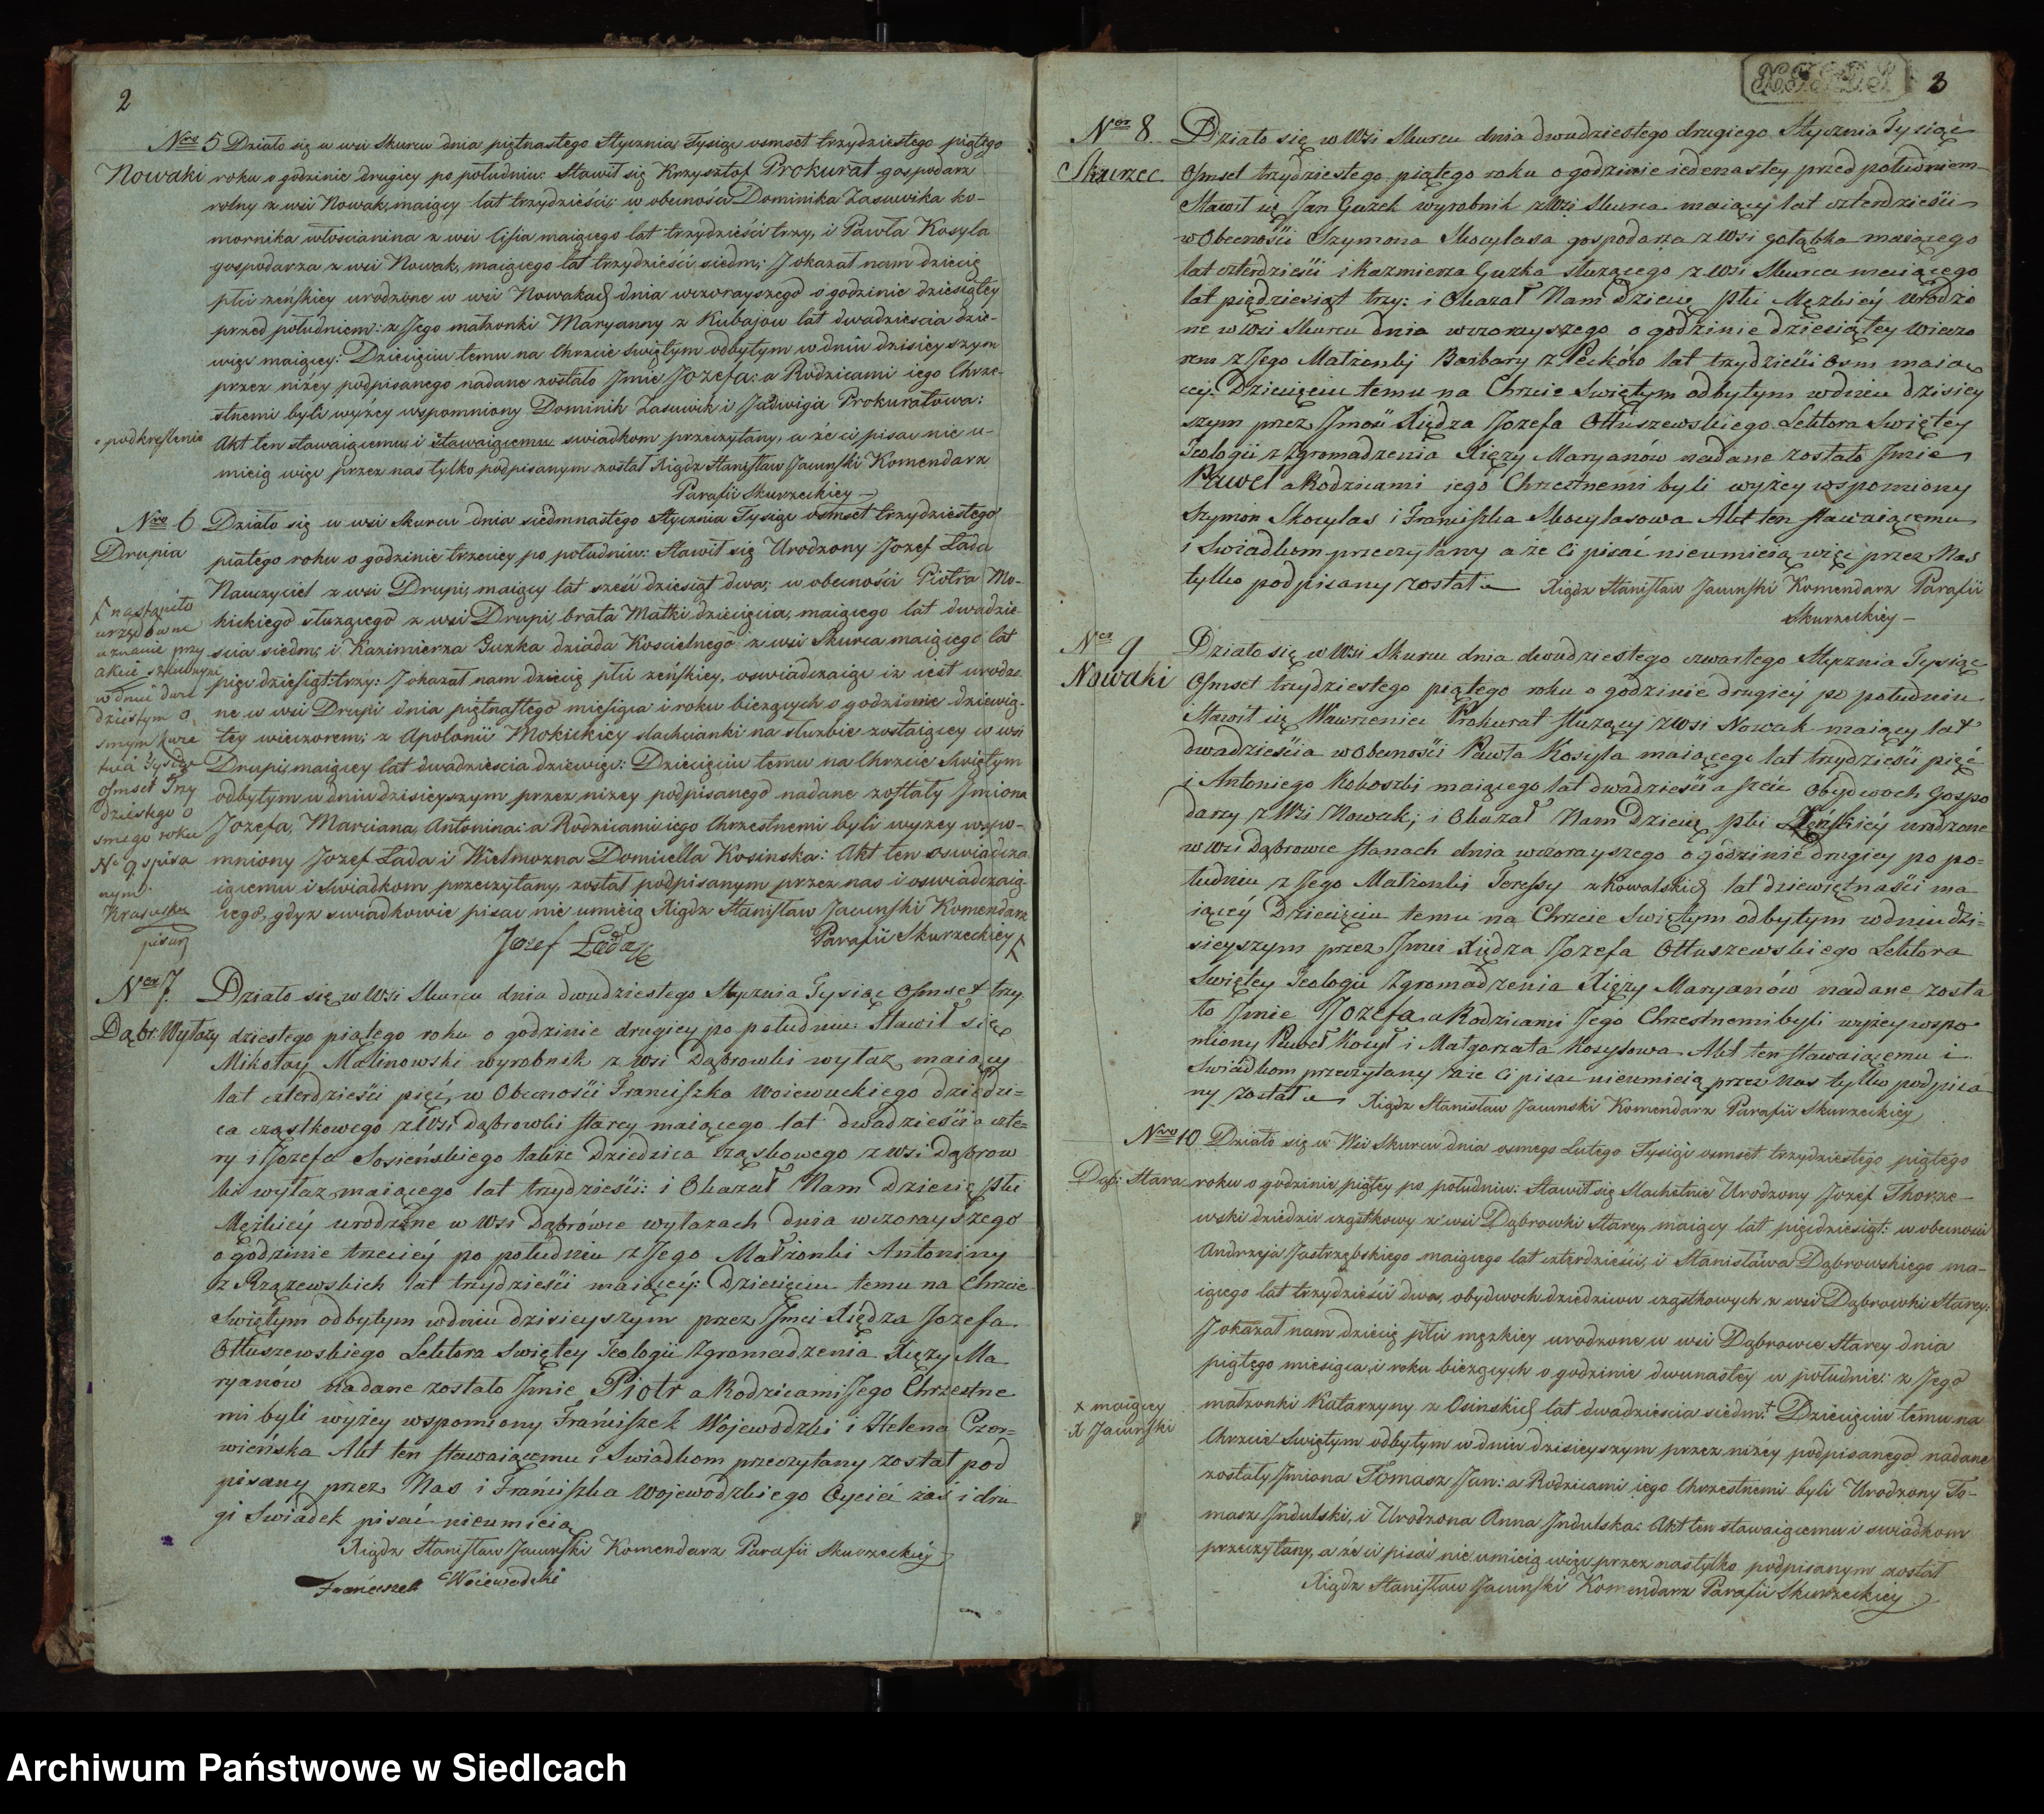 2
Nro 5 Działo się w wsi Skurcu dnia piętnastego Stycznia Tysiąc osmset trzydziestego piątego
Nowaki roku o godzinie drugiey po południu: Stawił się Krzysztof Prokurat gospodarz
rolny z wsi Nowak, maiący lat trzydzieści; w obecności Dominika Zasuwika ko-
mornika włoscianina z wsi maiącego lat trzydzieści trzy, i Pawła Kosyla
gospodarza z wsi Nowak, maiącego lat trzydzieści siedm; J okazał nam dziecię
płci zeńskiey urodzone w wsi Nowakach dnia wczorayszego o godzinie dziesiątey
przed południem: z Jego małzonki Maryanny z Kubajow lat dwadziescia dzie-
więc maiącey: Dziecięciu temu na Chrzcie swiętym odbytym w dniu dzisieyszym
przez niżéy podpisanego nadane zostało Jmie Jozefa: a Rodzicami iego Chrze-
stnemi byli wyżéy wspomniony Dominik Zasuwik i Jadwiga Prokuratowa:
° podkreślenie Akt ten stawaiącemu i stawaiącemu swiadkom przeczytany, a że ci pisac nie u-
mieią więc przez nas tylko podpisanym został Xiądz Stanisław Jacunski Komendarz
Parafii Skurzeckiey
Nro 6 Działo się w wsi Skurcu dnia siedmnastego Stycznia Tysiąc osmset trzydziestego
Drupia piątego roku o godzinie trzeciey po południu: Stawił się Urodzony Jozef Łada
Nauczyciel z wsi Drupi, maiący lat sześć dziesiąt dwa; w obecności Piotra Mo-
kickiego słuzącego z wsi Drupi, brata Matki dziecięcia, maiącego lat dwadzie-
scia siedm; i Kazimierza Guzka dziada Koscielnego z wsi Skurca maiącego lat
pięc dziesiąt trzy: J okazał nam dziecię płci zeńskiey, oswiadczaiąc iz iest urodzo-
ne w wsi Drupi dnia piętnastego miesiąca i roku bieżących o godzinie dziewią-
tey wieczorem; z Apolonii Mokickiey slachcianki na słuzbie zostaiącey w wsi
Drupi, maiącey lat dwadziescia dziewięc: Dziecięciu temu na Chrzcie Swiętym
odbytym w dniu dzisieyszym przez nizey podpisanego nadane zostały Jmiona
Jozefa, Marcianna, Antonina: a Rodzicami iego Chrzestnemi byli wyzey wspo-
mniony Jozef Łada i Wielmozna Domicella Kosinska: Akt ten oswiadcza
iącemu i swiadkom przeczytany, został podpisanym przez nas i oswiadczaią-
cego, gdyz swiadkowie pisac nie umieią Xiądz Stanisław Jacunski Komendarz
Jozef Łada Parafii Skurzeckiey
nastąpiło
urzędowne
uznanie przy
akcie
w dniu dwu
dziestym o
smym kwie
tnia Tysiąc
osmset Trzy
dziestego o
smego roku
No 9 spisa
nym
Krasuski
pisarz
Ner 7. Działo się w Wsi Skurcu dnia dwudziestego Stycznia Tysiąc Osmset trzy
Dąbr: Wyłazy dziestego piątego roku o godzinie drugiey po południu: Stawił się
Mikołay Malinowski wyrobnik z wsi Dąbrowki wyłaz maiący
lat czterdzieści pięć, w Obecności Franciszka Wojewuckiego dziedzi-
ca cząstkowego z Wsi Dąbrowki starey maiącego lat dwadzieścia czte-
ry i Jozefa Sosieńskiego także Dziedzica Cząstkowego z wsi Dąbrow
ki wyłaz maiącego lat trzydzieści: i Okazał Nam Dziecię płci
Mężkiéy urodzone w Wsi Dąbrówce wyłazach dnia wczorayszego
o godzinie trzeciéy po południu z Jego Małżonki Antoniny
z Rzązewskich lat trzydzieści maiącéy: Dziecięciu temu na Chrzcie
Swiętym odbytym w dniu dzisieyszym przez Jmci Xiędza Jozefa
Ołtuszewskiego Lektora Swiętey Teologii Zgromadzenia Xięzy Ma
ryanów nadane zostało Jmie Piotr a Rodzicami Jego Chrzestne
mi byli wyżey wspomiony Franciszek Wojewódzki i Helena Czer-
wieńska Akt ten stawaiącemu i Swiadkom przeczytany został pod
pisany przez Nas i Franciszka Wojewodzkiego Oyciec zaś i dru
gi Swiadek pisać nieumieią
Xiądz Stanisław Jacunski Komendarz Parafii Skurzeckiéy
Franciszek Woiewodzki
3
Ner 8. Działo się w Wsi Skurcu dnia dwudziestego drugiego Stycznia Tysiąc
Skurzec. Osmset trzydziestego piątego roku o godzinie iedenastey przed południem
Stawił się Jan Guzek wyrobnik z Wsi Skurca maiący lat czterdzieści
w Obecności Szymona Skocylasa gospodarza z Wsi gołąbka maiącego
lat czterdzieści i Kazmierza Guzka słuzącego z Wsi Skurca maiącego
lat pięćdziesiąt trzy: i Okazał Nam Dziecię płci Męzkiéy urodzo
ne w Wsi Skurcu dnia wczorayszego o godzinie dziesiątey wieczo
rem z Jego Małżonki Barbary z Pecków lat trzydzieści osm maią
cey Dziecięciu temu na Chrzcie Swiętym odbytym w dniu dzisiey
szym przez Jmci Xiędza Jozefa Ołtuszewskiego Lektora Swiętey
Teologii z Zgromadzenia Xięzy Maryanów nadane zostało Jmie
Paweł a Rodzicami iego Chrzestnemi byli wyżey wspomiony
Szymon Skocylas i Franciszka Skocylasowa Akt ten stawaiącemu
i Swiadkom przeczytany a że Ci pisać nieumieią więc przez Nas
tylko podpisany został Xiądz Stanisław Jacunski Komendarz Parafii
Skurzeckiey
Ner 9 Działo się w Wsi Skurcu dnia dwudziestego czwartego Stycznia Tysiąc
Nowaki Osmset trzydziestego piątego roku o godzinie drugiéy po południu
Stawił się Wawrzeniec Prokurat słuzący z Wsi Nowak maiący lat
dwadzieścia w Obecności Pawła Kosyla maiącego lat trzydzieści pięć
i Antoniego Kokoszki maiącego lat dwadzieścia sześć Obydwoch Gospo
darzy z Wsi Nowak; i Okazał Nam Dziecię płci Żeńskiéy urodzone
w wsi Dąbrowce stanach dnia wczorayszego o godzinie drugiey po po-
łudniu z Jego Małzonki Teressy z Kowalskich lat dziewiętnaści ma
iącéy Dziecięciu temu na Chrzcie Swiętym odbytym w dniu dzi-
sieyszym przez Jmci Xiędza Jozefa Ołtuszewskiego Lektora
Swiętey Teologii Zgromadzenia Xięzy Maryanów nadane zosta
ło Jmie Jozefa a Rodzicami Jego Chrzestnemi byli wyżey wspo
miony Paweł Kosył i Małgorzata Kosyłowa Akt ten stawaiącemu i
Swiadkom przeczytany a że Ci pisac nieumieią przez Nas tylko podpisa
ny został Xiądz Stanisław Jacunski Komendarz Parafii Skurzeckiey
Nro 10 Działo się w Wsi Skurcu dnia osmego Lutego Tysiąc osmset trzydziestego piątego
Dąb: Stara roku o godzinie piątey po południu: Stawił się Slachetnie Urodzony Jozef Thorze-
wski dziedzic cząstkowy z wsi Dąbrowki Starey, maiący lat pięcdziesiąt: w obecnosci
Andrzeja Jastrzębskiego maiącego lat czterdzieści, i Stanisława Dąbrowskiego ma-
iącego lat trzydzieści dwa, obydwoch dziedzicow cząstkowych z wsi Dąbrowki Starey:
J okazał nam dziecię płci męzkiey urodzone w wsi Dąbrowce Starey dnia
piątego miesiąca i roku bieżących o godzinie dwunastey w południe: z Jego
małzonki Katarzyny z Osinskich lat dwadziescia siedm † Dziecięciu temu na
x maiącey
X Jacunski
Chrzcie Swiętym odbytym w dniu dzisieyszym przez niżéy podpisanego nadane
zostały Jmiona Tomasz Jan: a Rodzicami iego Chrzestnemi byli Urodzony To-
masz Jndulski, i Urodzona Anna Jndulska: Akt ten stawaiącemu i swiadkom
przeczytany, a że ci pisać nie umieią więc przez nas tylko podpisanym został
Xiądz Stanisław Jacunski Komendarz Parafii Skurzeckiey
Archiwum Państwowe w Siedlcach